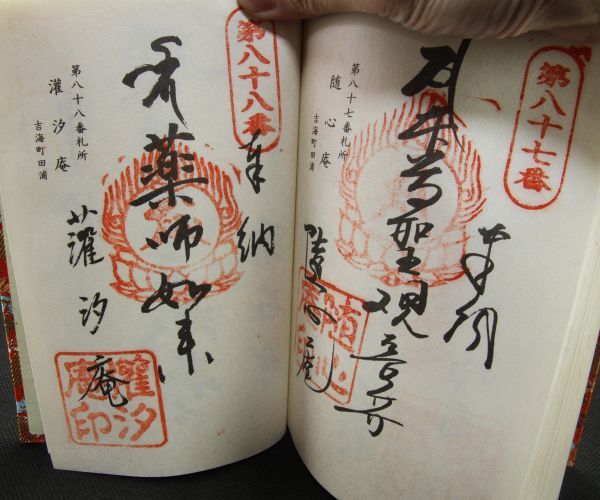 第八十七番
奉納
本尊聖観音菩薩
随心庵
第八十七番札所
随心庵
吉海町田浦
随心庵印
第八十八番
奉納
薬師如来
蘿汐庵
第八十八番札所
濯汐庵
吉海町田浦
庵印